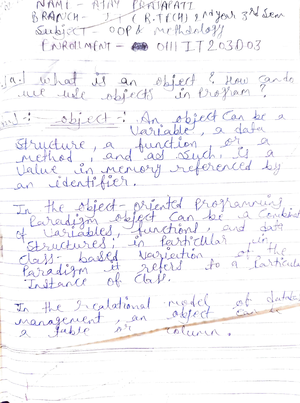 NAME - AJAY PRAJAPATI
BRANCH - I.T (B.TECH) 2nd year 3rd sem
Subject - OOP & methodology
ENROLLMENT - 0111 IT203D03
what is an object? How can
we use objects in Program?
object :- An object can be a
variable, a data
structure, a function or a
method, and as such, is a
value in memory referenced by
an identifier.
In the object-oriented Programming
Paradigm object can be a combina
of variables, functions, and data
structures; in particular in
class-based variation of the
Paradigm it refers to a particula
instance of class.
In the relational model of databas
management, an object can be
a table or column.